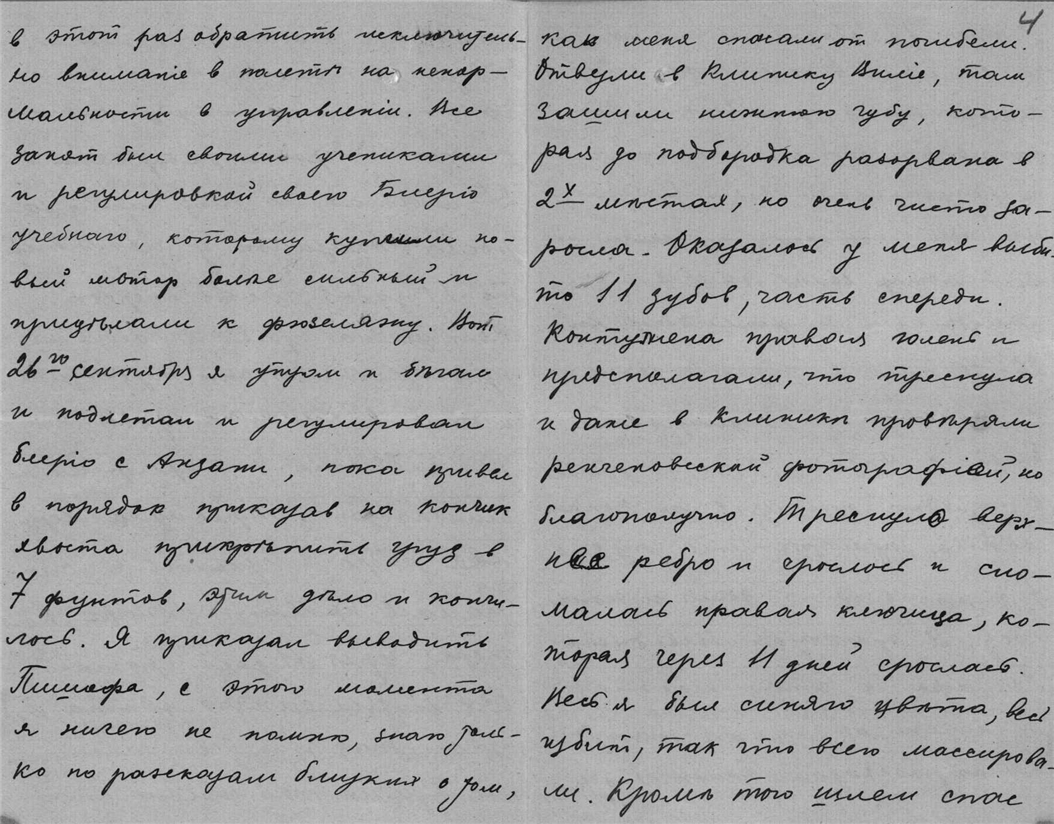 в этот раз обратить исключитель-
но внимание в полетѣ на ненор-
мальности в управленіи. Все
занят был своими учениками
и регулировкой своего Блеріо
учебнаго, которому купили но-
вый мотор болѣе сильный и
придѣлали к фюзеляжу. Вот
26го сентября я утром и бѣгал
и подлетал и регулировал
блеріо с Анзани, пока привел
в порядок приказав на кончик
хвоста прикрѣпить груз в
7 фунтов, этим дѣло и кончи-
лось. Я приказал выводить
Пишофа, с этого момента
я ничего не помню, знаю толь-
ко по разсказам близких о том,
4
как меня спасали от погибели.
Отвезли в Клинику Виліе, там
зашили нижнюю губу, кото-
рая до подбородка разорвана в
2х мѣстах, но очень чисто за-
росла. Оказалось у меня выби-
то 11 зубов, часть спереди.
Контужена правая голень и
предполагали, что треснула
и даже в Клиникѣ провѣряли
ренгеновской фотографіей, но
благополучно. Треснуло верх-
нее ребро и срослось и сло-
малась правая ключица, ко-
торая через 11 дней срослась.
Весь я был синяго цвѣта, весь
избит, так что всего массирова-
ли. Кромѣ того шлем спас